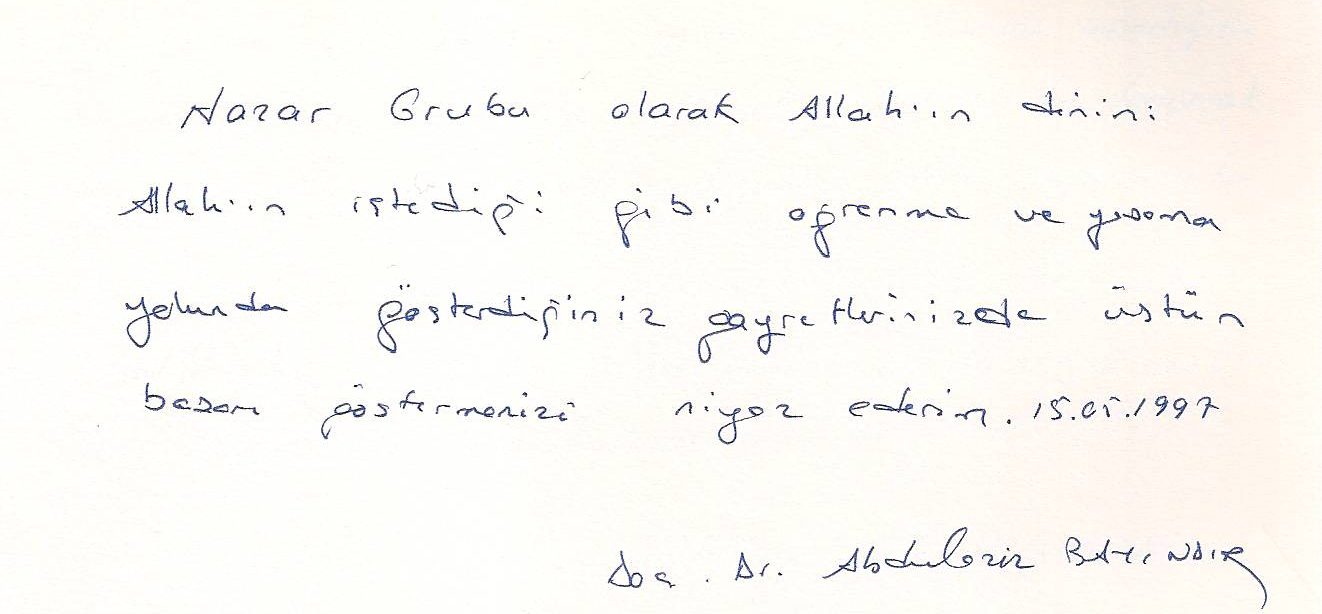 Nazar Grubu olarak Allah'ın dinini
Allah'ın istediği gibi öğrenme ve yaşama
yolunda gösterdiğiniz gayretlerinizde üstün
başarı göstermenizi niyaz ederim. 15.05.1997
Doç. Dr. Abdulaziz BAYINDIR